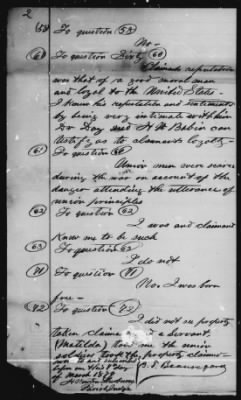 2
(58) To question (58)
No —
(60) To question Sixty (60)
Claimants reputation
was that of a good moral man
and loyal to the United States —
I know his reputation and sentiments
by being very intimate with him
Dr Day and H H Babin can
testify as to claimants loyalty —
(61) To question 61
Union men were scarce
during the war on account of the
danger attending the utterance of
union principles
(62) To question (62)
I was and claimant
knew me to be such
(63) To question 63
I do not
(71) To question (71)
No. I was born
free —
(72) To question (72)
I did not see property
taken claimants servant,
(Matilda) told me the union
soldiers took the property claimed —
to and subscribed
before me this day
of March 187